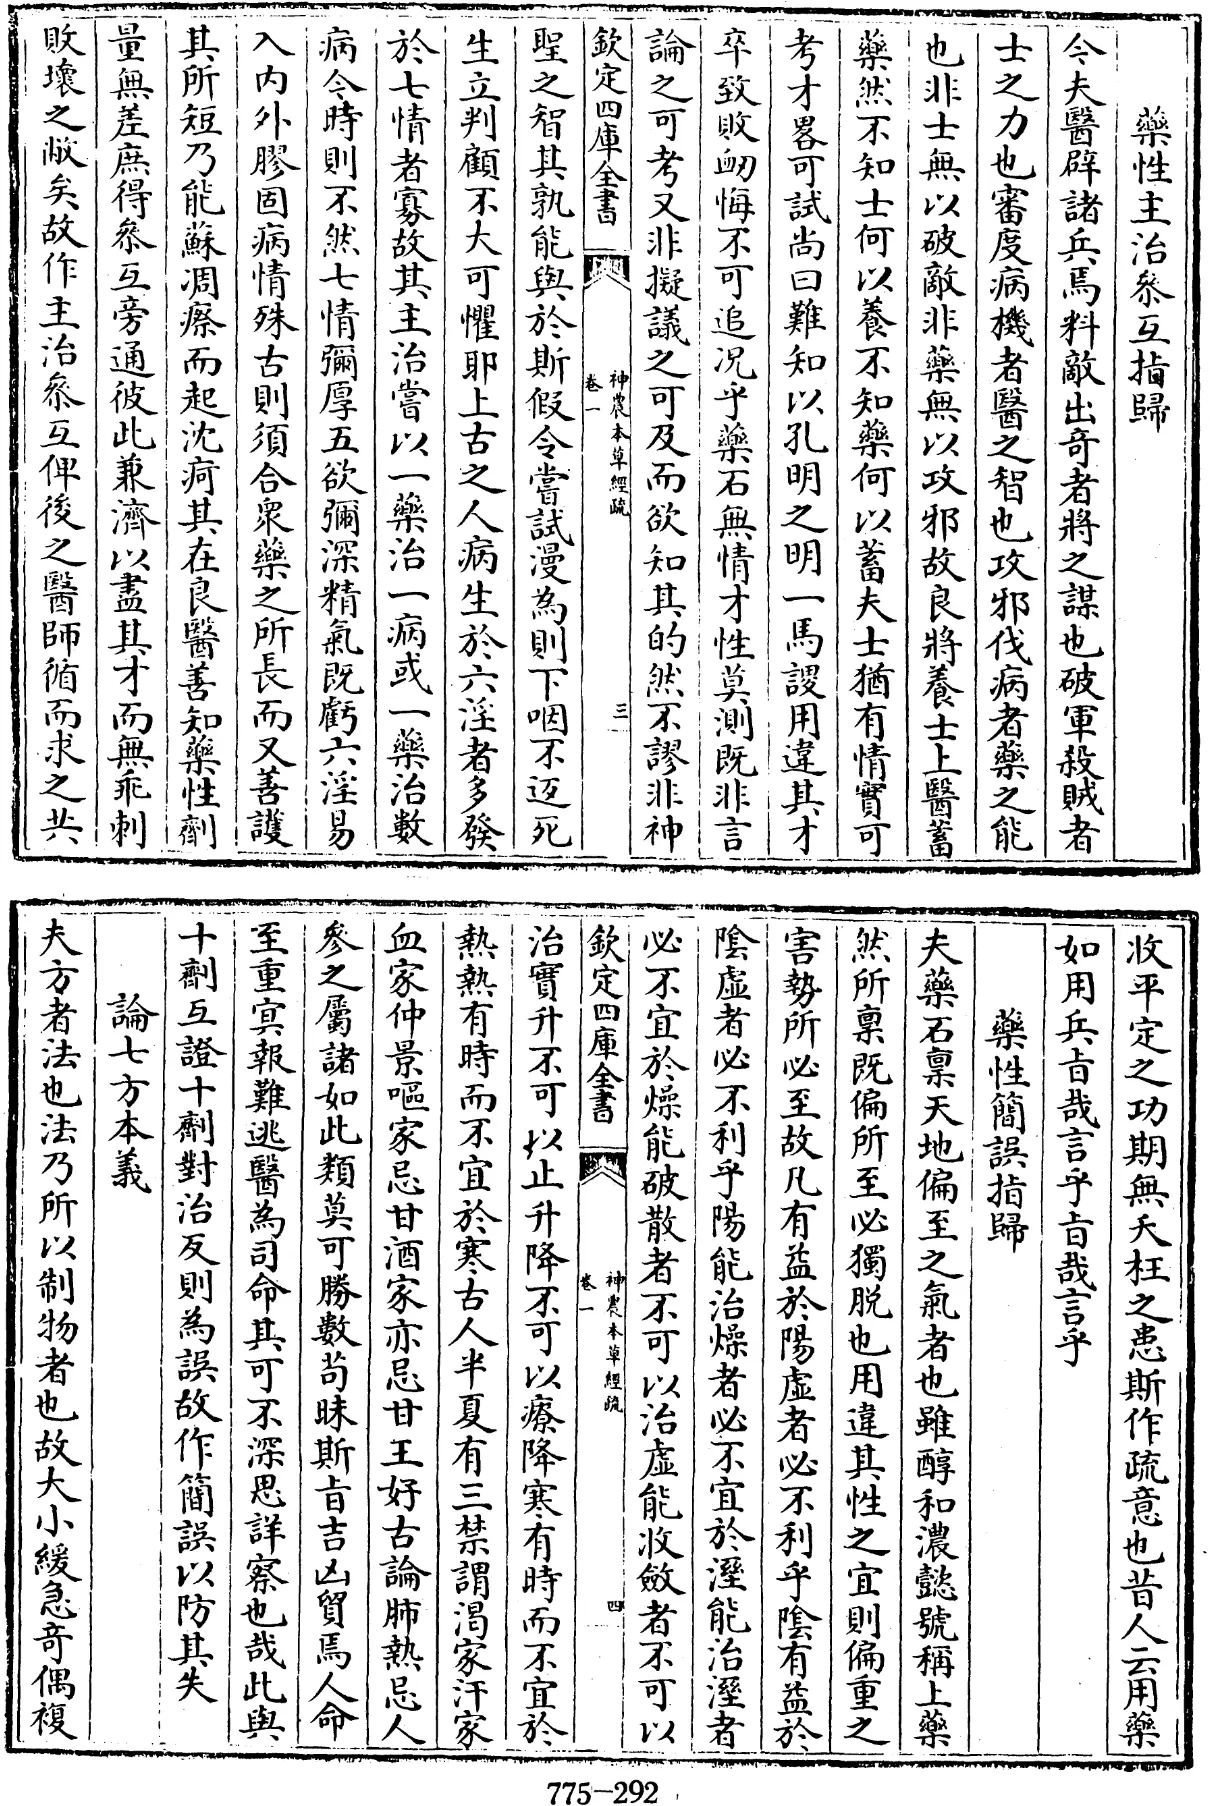 藥性主治叅互指歸
今夫醫辟諸兵焉料敵出奇者將之謀也破軍殺賊者
士之力也審度病機者醫之智也攻邪伐病者藥之能
也非士無以破敵非藥無以攻邪故良將養士上醫蓄
藥然不知士何以養不知藥何以蓄夫士猶有情實可
考才畧可試尚曰難知以孔明之明一馬謖用違其才
卒致敗衂悔不可追况乎藥石無情才性莫測既非言
論之可考又非擬議之可及而欲知其的然不謬非神
欽定四庫全書
神農本草經疏
卷一
三
聖之智其孰能與於斯假令嘗試漫為則下咽不返死
生立判顧不大可懼耶上古之人病生於六淫者多發
於七情者寡故其主治嘗以一藥治一病或一藥治數
病令時則不然七情彌厚五欲彌深精氣既虧六淫易
入內外膠固病情殊古則須合衆藥之所長而又善護
其所短乃能蘇凋瘵而起沈疴其在良醫善知藥性劑
量無差庶得叅互旁通彼此兼濟以盡其才而無乖刺
敗壞之敝矣故作主治叅互俾後之醫師循而求之共
收平定之功期無夭枉之患斯作疏意也昔人云用藥
如用兵旨哉言乎旨哉言乎
藥性簡誤指歸
夫藥石禀天地偏至之氣者也雖醇和濃懿號稱上藥
然所禀既偏所至必獨脱也用違其性之宜則偏重之
害勢所必至故凡有益於陽虛者必不利乎陰有益於
陰虛者必不利乎陽能治燥者必不宜於溼能治溼者
必不宜於燥能破散者不可以治虛能收斂者不可以
欽定四庫全書
神農本草經疏
卷一
四
治實升不可以止升降不可以療降寒有時而不宜於
熱熱有時而不宜於寒古人半夏有三禁謂渴家汗家
血家仲景嘔家忌甘酒家亦忌甘王好古論肺熱忌人
參之屬諸如此類莫可勝數茍昧斯旨吉凶貿焉人命
至重冥報難逃醫為司命其可不深思詳察也哉此與
十劑互證十劑對治反則為誤故作簡誤以防其失
論七方本義
夫方者法也法乃所以制物者也故大小緩急奇偶複
775-292